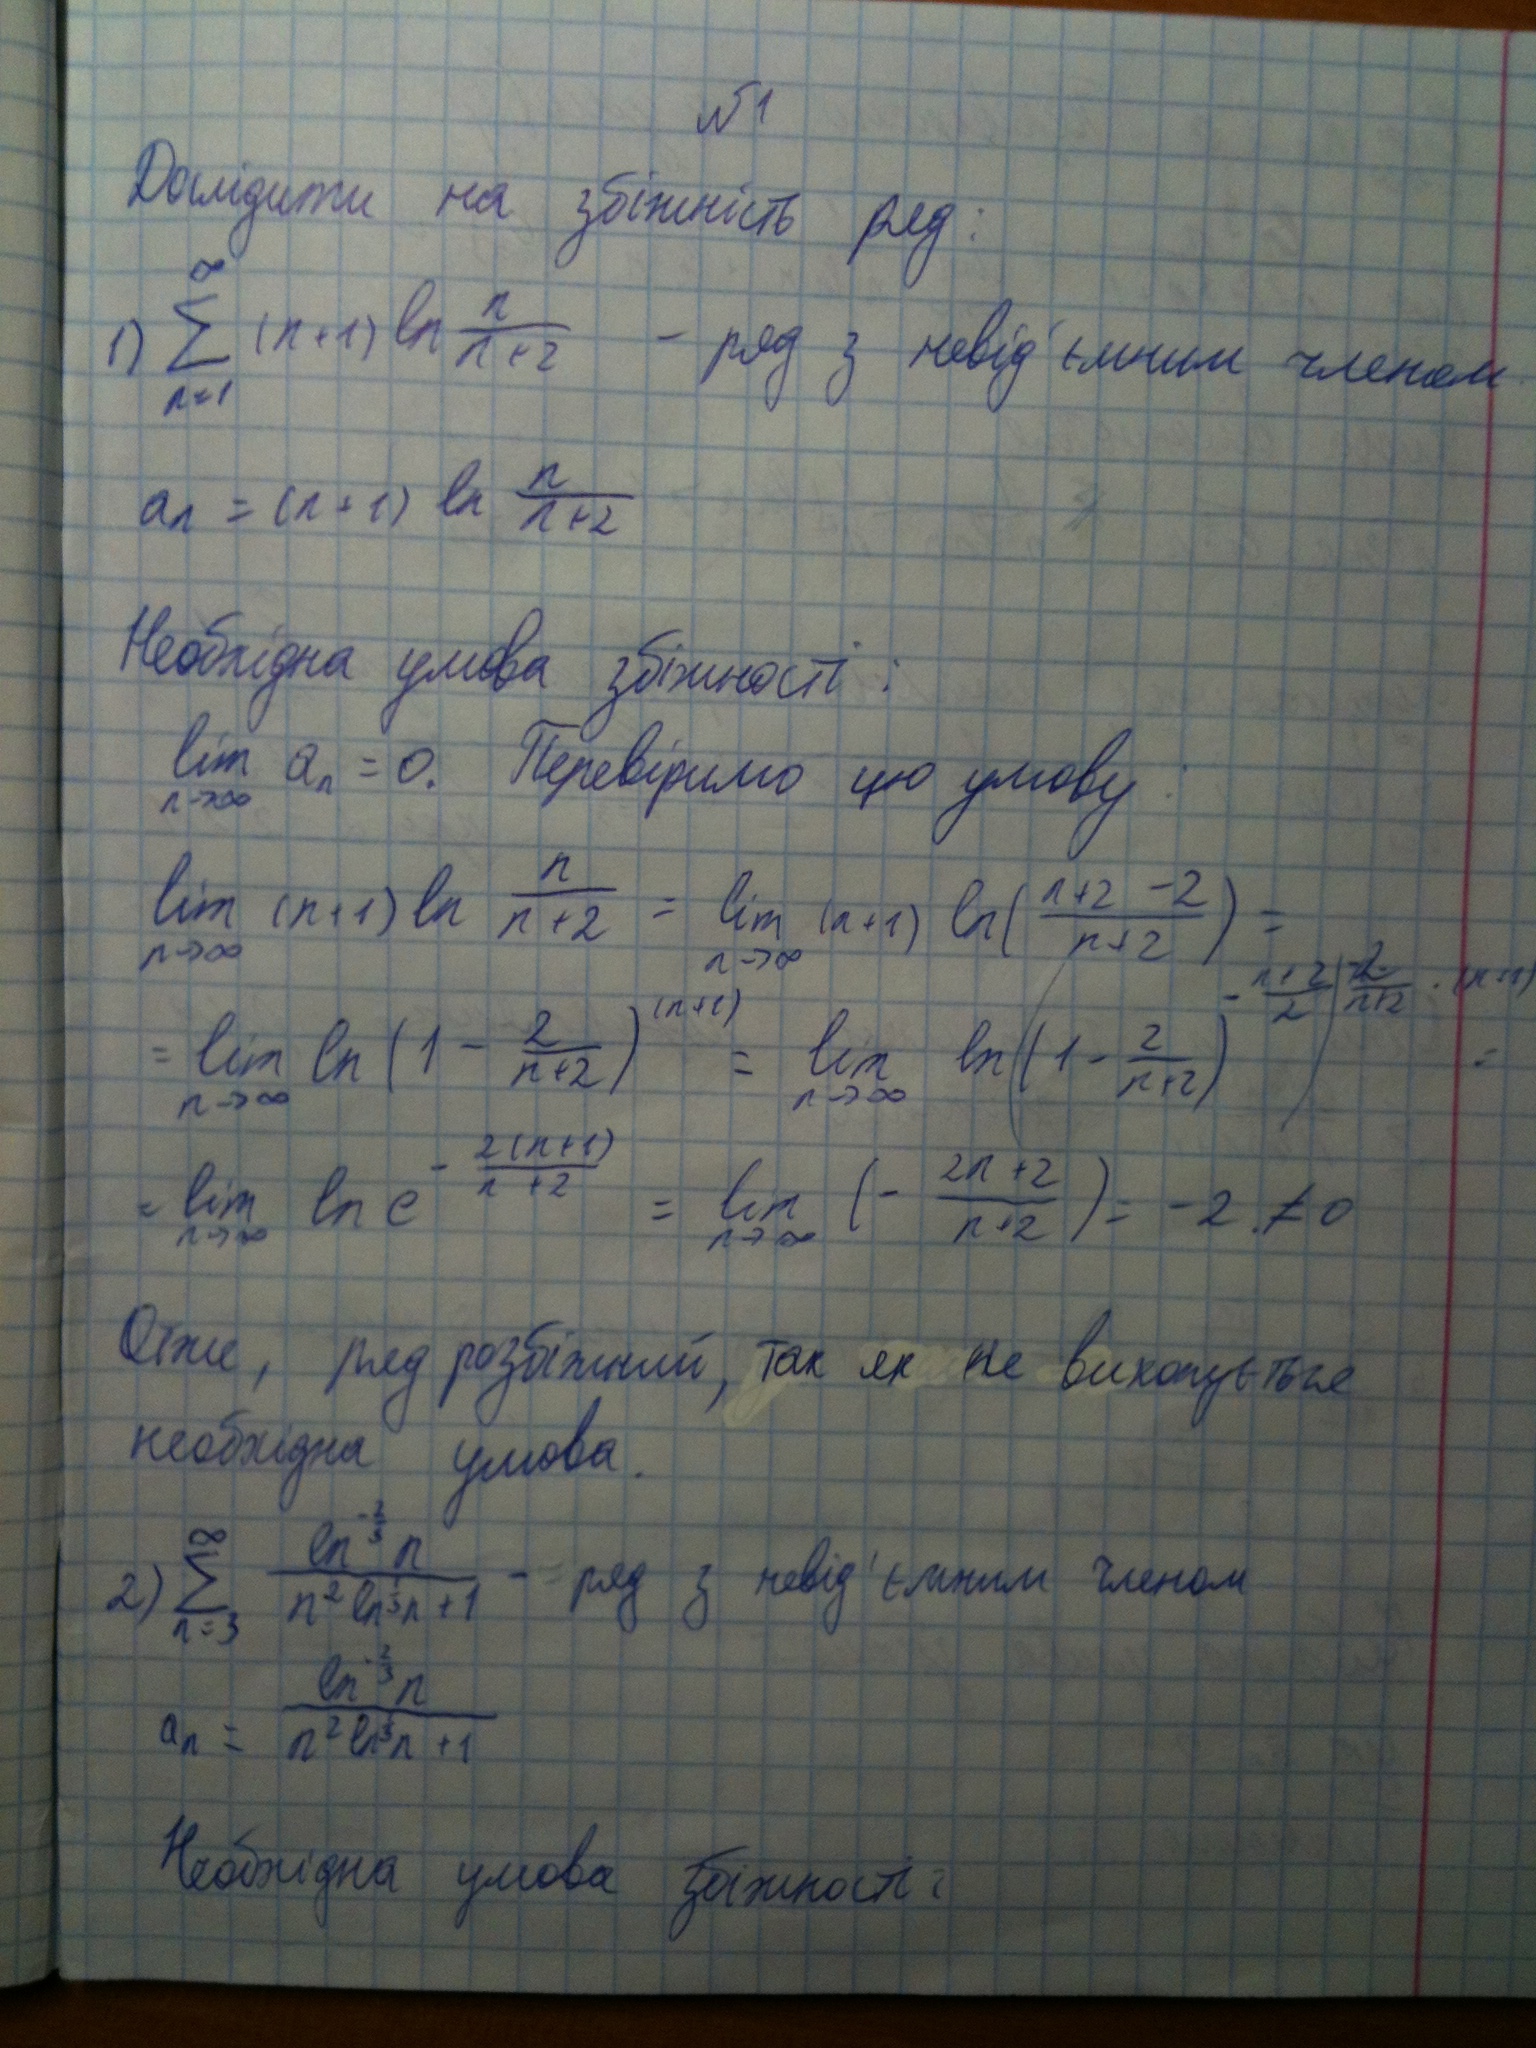 №1
Дослідити на збіжність ряд:
1) ∑_{n=1}^{∞} (n+1) ln \frac{n}{n+2} - ряд з невід'ємним членом
a_n = (n+1) ln \frac{n}{n+2}
Необхідна умова збіжності:
lim_{n→∞} a_n = 0. Перевіримо цю умову:
lim_{n→∞} (n+1) ln \frac{n}{n+2} = lim_{n→∞} (n+1) ln(\frac{n+2-2}{n+2}) =
= lim_{n→∞} ln(1 - \frac{2}{n+2})^{(n+1)} = lim_{n→∞} ln((1 - \frac{2}{n+2})^{-\frac{n+2}{2}})^{-\frac{2}{n+2}·(n+1)} =
= lim_{n→∞} ln e^{-\frac{2(n+1)}{n+2}} = lim_{n→∞} (-\frac{2n+2}{n+2}) = -2 ≠ 0
Отже, ряд розбіжний, так як не виконується
необхідна умова.
2) ∑_{n=3}^{∞} \frac{ln^{-\frac{2}{3}} n}{n^2 ln^{\frac{1}{3}} n + 1} - ряд з невід'ємним членом
a_n = \frac{ln^{-\frac{2}{3}} n}{n^2 ln^{\frac{1}{3}} n + 1}
Необхідна умова збіжності: